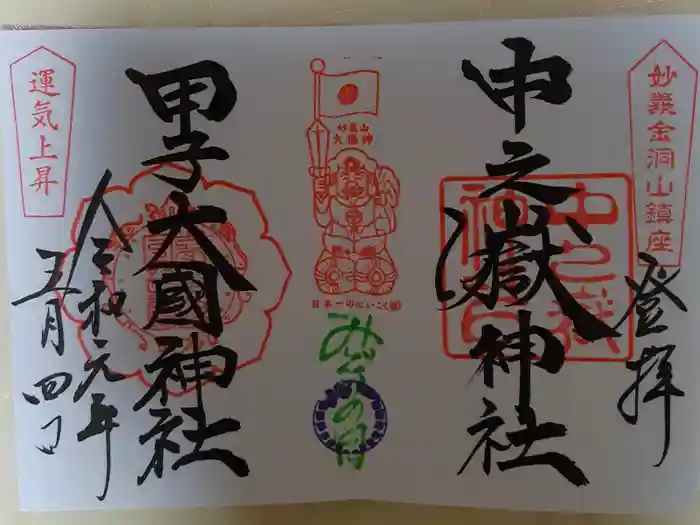 妙義金洞山鎮座
登拝
中之嶽神社
中之嶽
神社
妙義山
大黒神
日本一のだいこく様
みどりの日
甲子大國神社
運気上昇
令和元年
五月四日